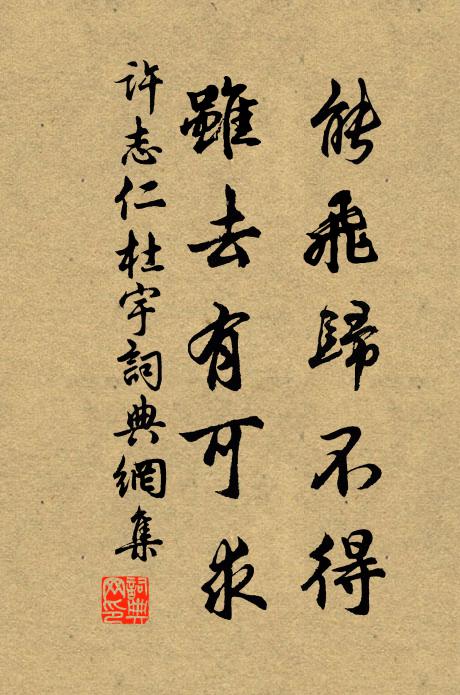 能飛歸不得
雖去有可求
許志仁杜宇詞典網集
詞典网印